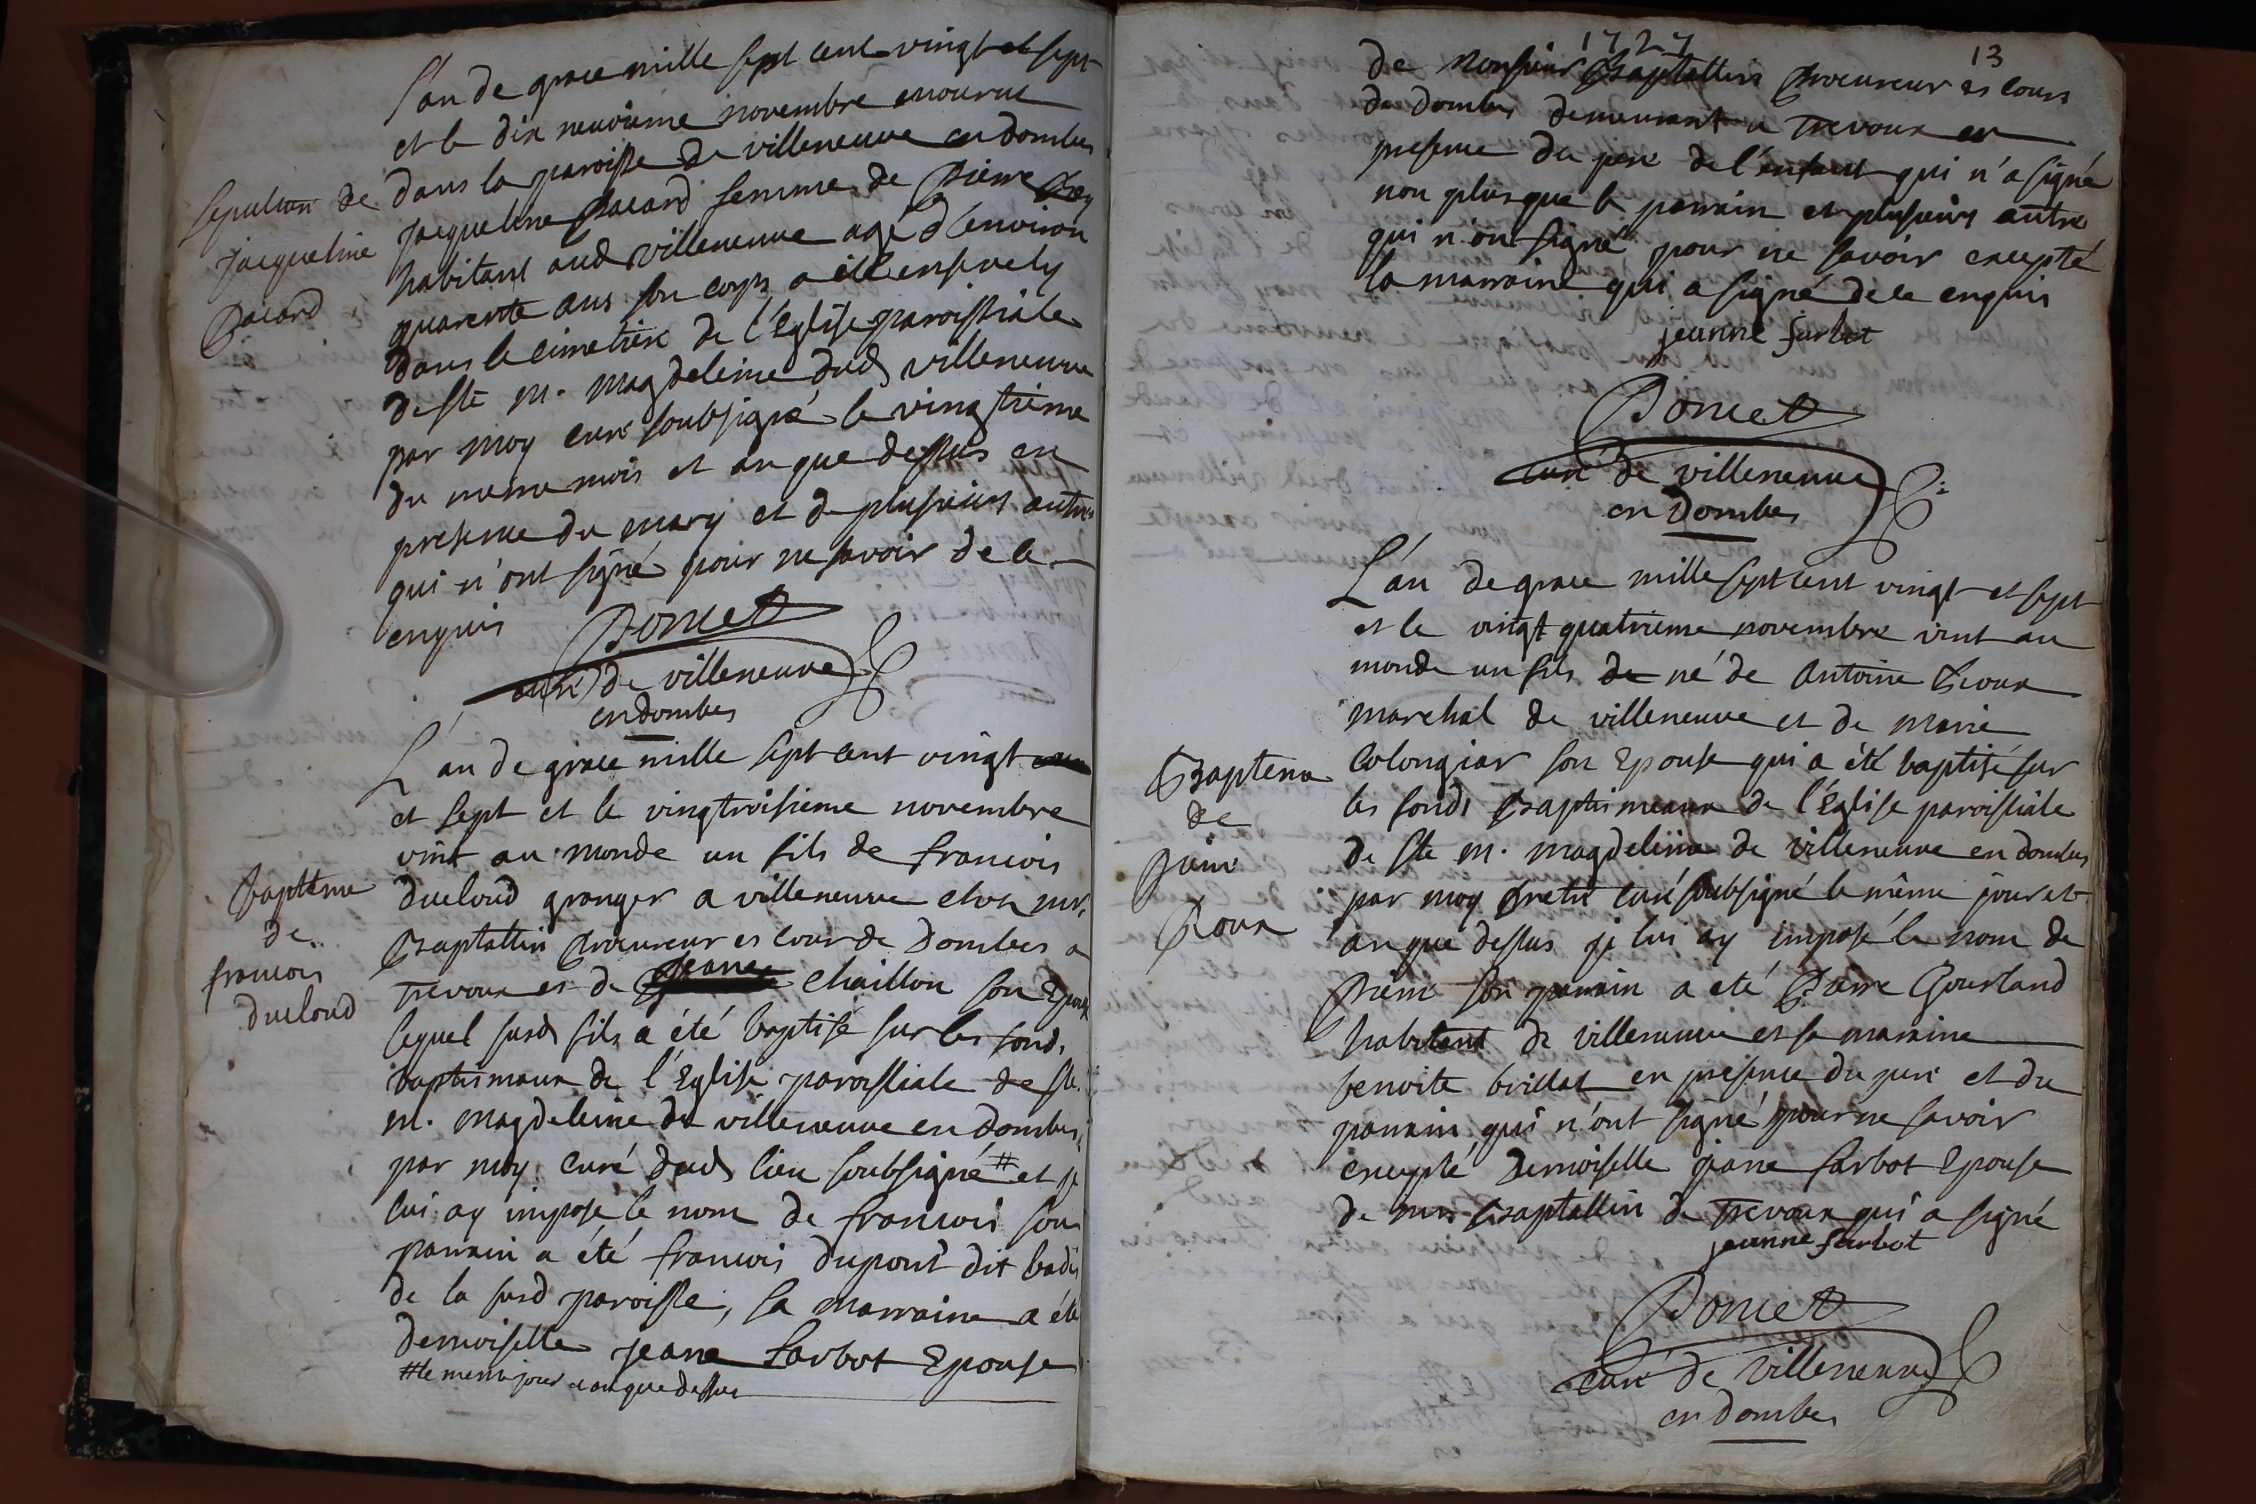 L'an de grace mille sept cent vingt et sept
et le dix neuvième novembre mourut
dans la paroisse de villeneuve en dombes
jacqueline Pacard femme de Pierre
habitant aud villeneuve agé d'environ
quarente ans son corps a été ensevely
dans le cimetiere de l'Eglise paroissiale
de ste m. magdeleine dud villeneuve
par moy curé soubsigné le vingtième
du meme mois et an que dessus en
presence du mary et de plusieurs autres
qui n'ont signé pour ne savoir de ce
enquis
Poncet
curé de villeneuve
en dombes
Sepulture de
jacqueline
Pacard
L'an de grace mille sept cent vingt
et sept et le vingtroisieme novembre
vint au monde un fils de francois
ducloud granger a villeneuve chez mr.
Baptallin Procureur es cour de Dombes a
Trevoux et de jeane Chaillon son Epouse
lequel susd fils a été baptisé sur les fond.
baptismaux de l'Eglise paroissiale de ste.
m. magdeleine de villeneuve en dombes,
par moy curé dud lieu soubsigné # et je
lui ay imposé le nom de francois son
parrain a été francois dupont dit
de la susd paroisse, sa marraine a été
demoiselle jeane sarbot Epouse
# le meme jour et an que dessus
Baptême
de
francois
ducloud
1727
13
de Monsieur Baptallin Procureur es cours
de dombes demeurant a Trevoux en
presence du pere de l'enfant qui n'a signé
non plus que le parrain et plusieurs autre
qui n'on signé pour ne savoir excepté
la marraine qui a signé de ce enquis
jeanne sarbot
Poncet
curé de villeneuve
en Dombes
L'an de grace mille sept cent vingt et sept
et le vingt quatrieme novembre vint au
monde un fils de né de Antoine Proux
marchal de villeneuve et de marie
Colongiar son Epouse qui a été baptisé sur
les fonds Baptismeaux de l'Eglise paroissiale
de ste m. magdeleine de villeneuve en dombes
par moy Pretre curé soubsigné le même jour et
an que dessus je lui ay imposé le nom de
Pierre son parrain a été Pierre Gourland
habitent de villeneuve et sa marraine
benoite brillat en presence du pere et du
parrain qui n'ont signé pour ne savoir
excepté Demoiselle jeane sarbot Epouse
de mr. Baptallin de Trevoux qui a signé
jeanne sarbot
Poncet
curé de villeneuve
en dombes
Bapteme
de
Pierre
Proux